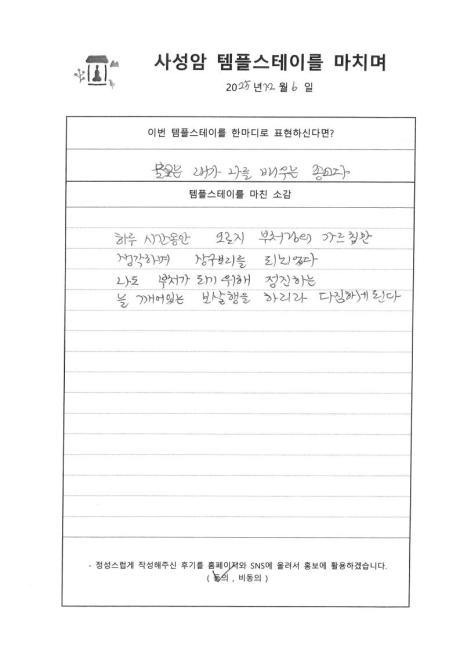 사성암 템플스테이를 마치며
2025년 12월 6일
이번 템플스테이를 한마디로 표현하신다면?
불교는 내가 나를 배우는 종교다
템플스테이를 마친 소감
하루 시간동안 오로지 부처님의 가르침만
생각하며 상구보리를 되뇌였다
나도 부처가 되기 위해 정진하는
늘 깨어있는 보살행을 하리라 다짐하게된다
- 정성스럽게 작성해주신 후기를 홈페이지와 SNS에 올려서 홍보에 활용하겠습니다.
( 동의 , 비동의 )